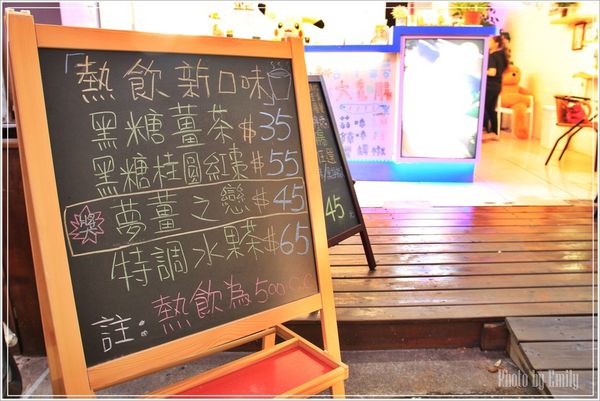 「熱飲新口味」
黑糖薑茶$35
黑糖桂圓紅棗$55
獎 夢薑之戀$45
特調水果茶$65
註:熱飲為500c.c
45
Photo by Emily